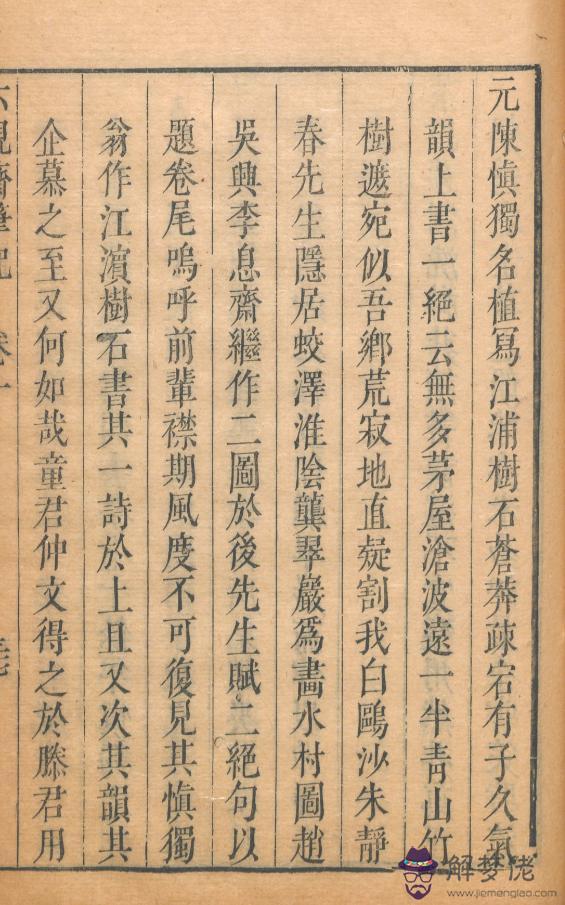 元陳慎獨名植冩江浦樹石蒼莽疎宕有子久氣
韻上書一絕云無多茅屋滄波遠一半青山竹
樹遮宛似吾鄉荒寂地直疑割我白鷗沙朱靜
春先生隱居蛟澤淮陰龔翠巖爲畵水村圖趙
吳興李息齋繼作二圖於後先生賦二絕句以
題卷尾嗚呼前輩襟期風度不可復見其慎獨
翁作江濵樹石書其一詩於上且又次其韻其
企慕之至又何如哉童君仲文得之於滕君用
六硯齋筆記 卷一
解梦佬
www.jiemenglao.com